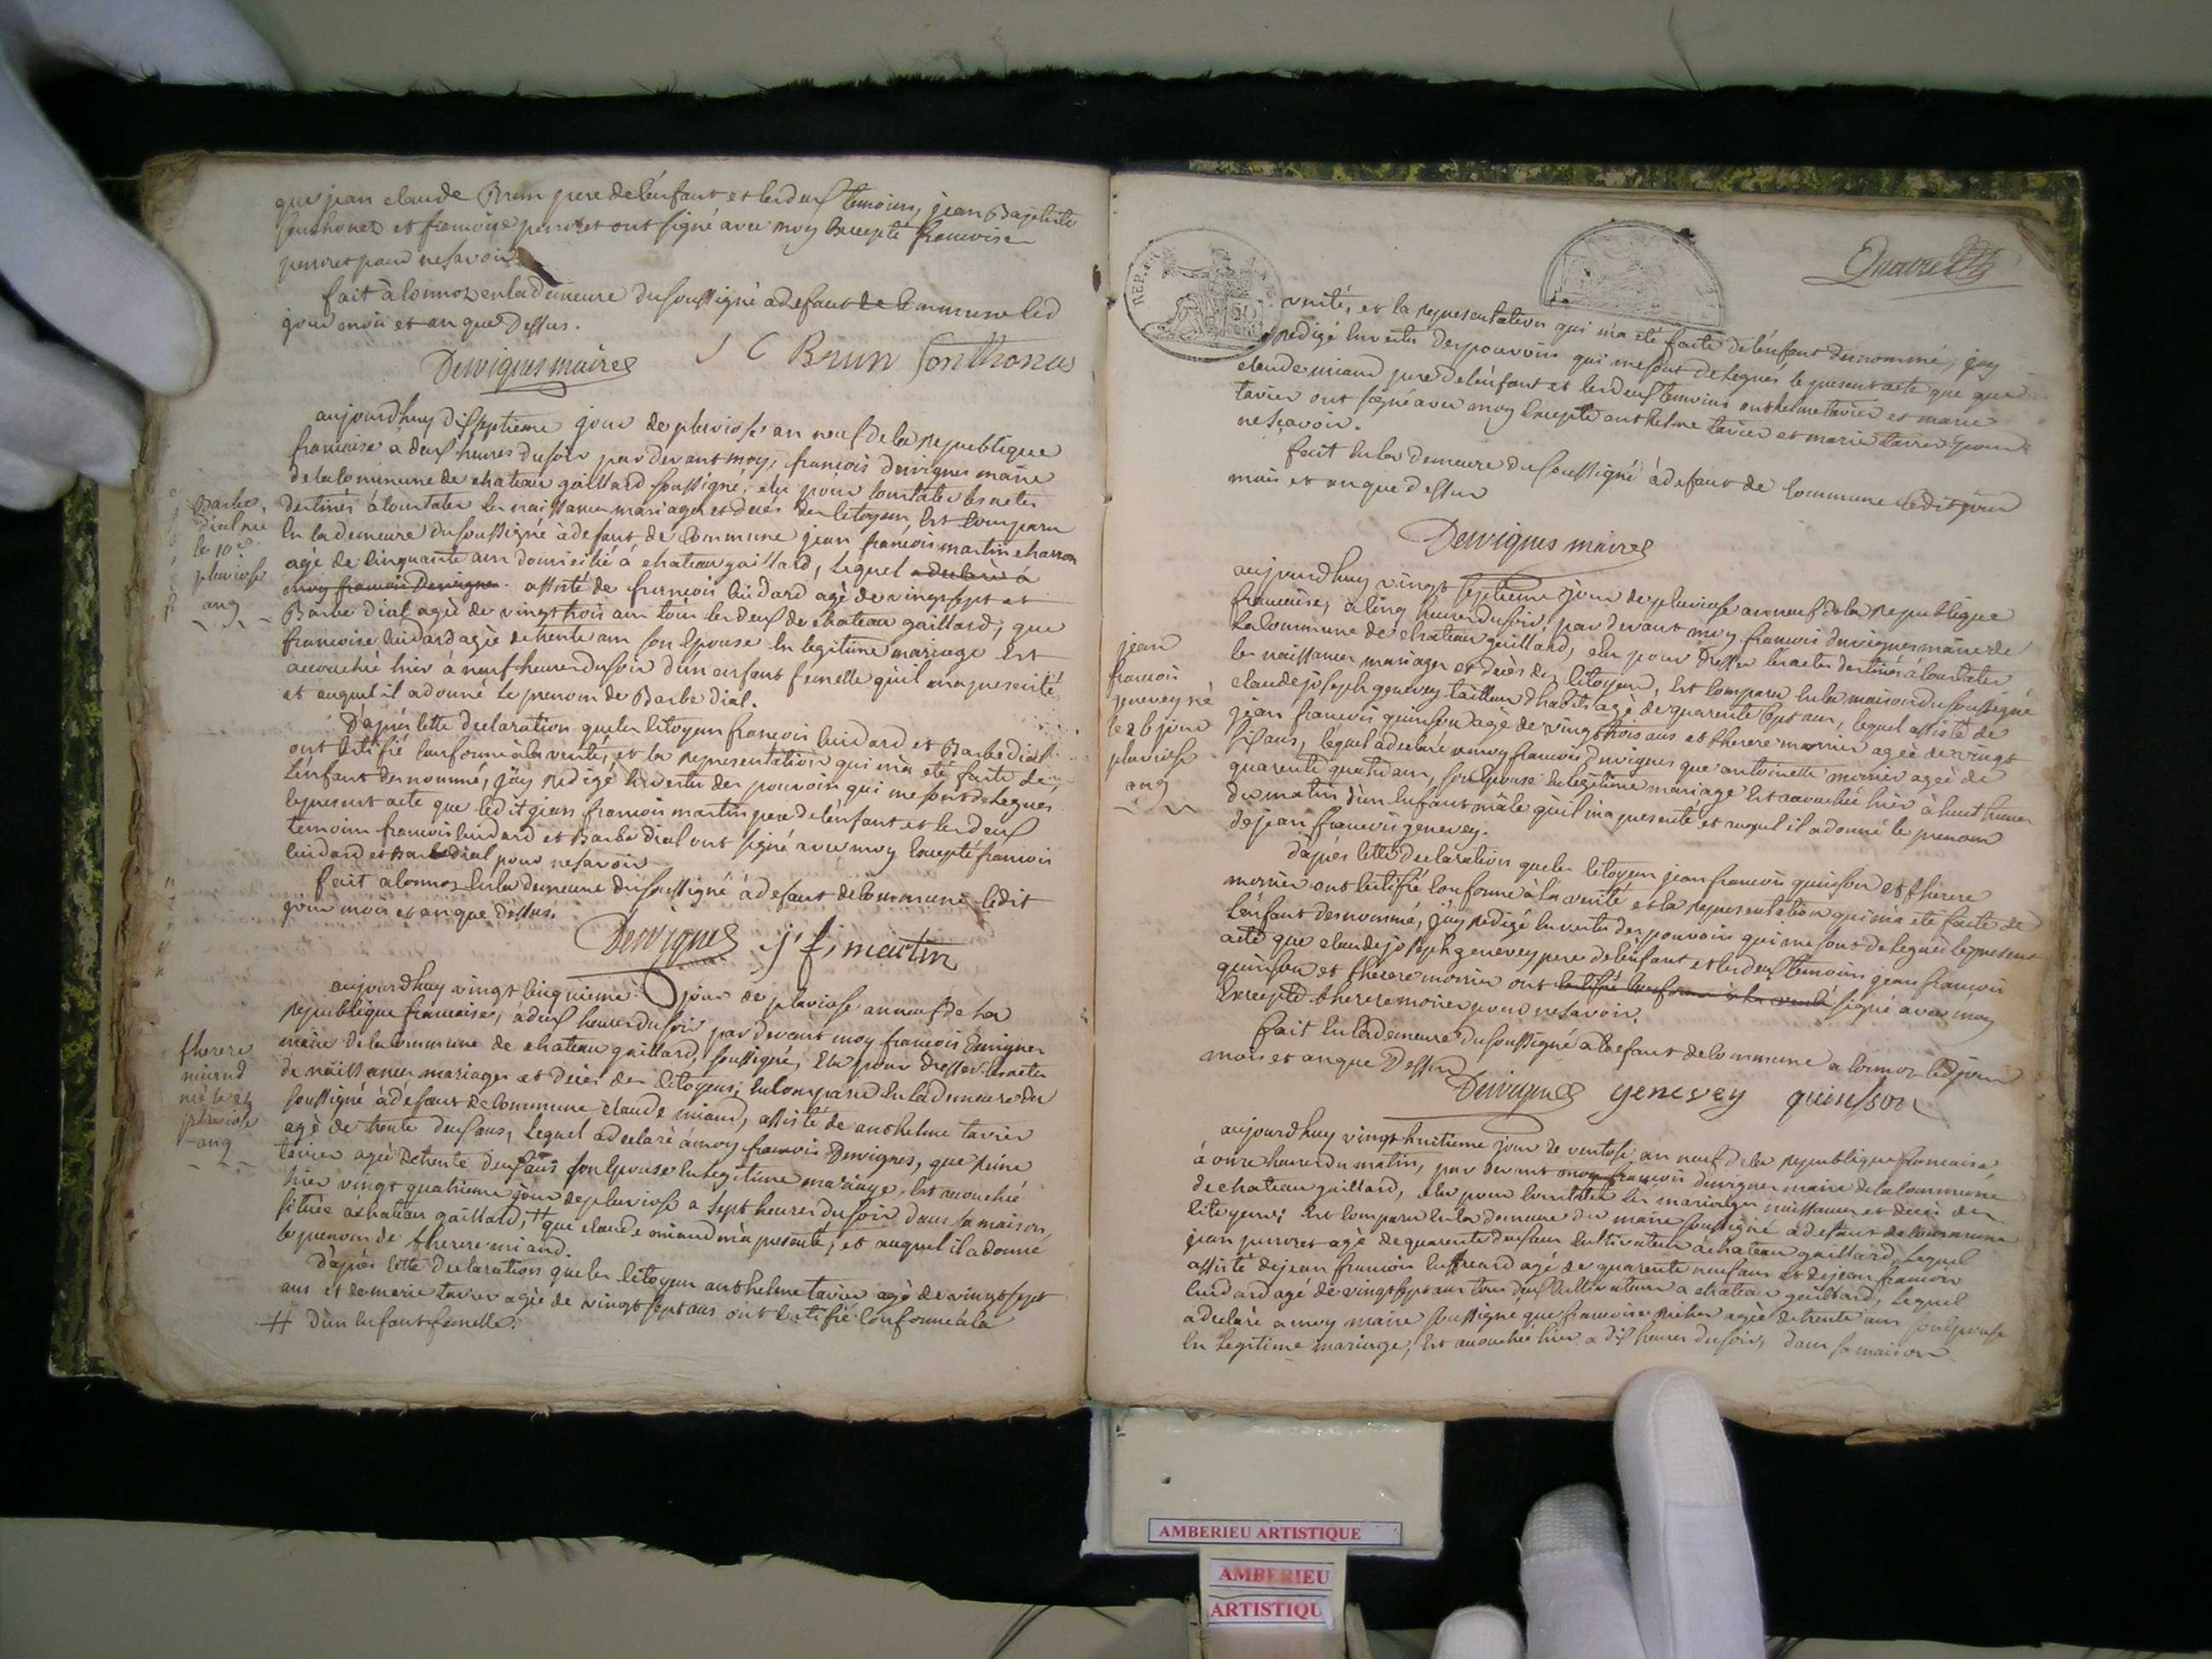 que jean claude Brun pere de lénfant et les deux temoins, jean Baptiste
et francoise perret ont signé avec moy Excepté francoise
perret pour ne savoir
fait à lormoz en la demeure du soussigné a defaut de Commune led
jour mois et an que Dessus.
Dervignes maire J C Brun Sonthonas
aujourdhuy dixseptieme jour de pluviose an neuf de la republique
francaise a deux heures du soir par devant moy, francois dervignes maire
de la Commune de chateau gaillard soussigné, elu pour Constater les actes
destinés à Constater les naissances mariages et decés des Citoyens, Est Comparu
En la demeure du soussigné à defaut de Commune jean francois martin charron
agé de Cinquante ans domicilié à chateau gaillard, lequel a declaré á
moy francois Dervignes. assisté de francois buidard agé de vingt sept et
Barbe dial agée de vingt trois ans tous les deux de chateau gaillard, que
francoise buidard agée de trente ans son Epouse En legitime mariage Est
accouchée hier à neuf heures du soir d'un enfant femelle qu'il m'a presenté,
et auquel il a donné le prenom de Barbe dial.
Barbe
dial née
le 10e
pluviose
an 9
D'apres Cette declaration que les Citoyens francois buidard et Barbe dial
ont Certifié Conforme à la verité, et la representation qui m'a eté faite de
l'enfant denommé, j'ay redigé En vertu des pouvoirs qui me sont delegués
le present acte que ledit jean francois martin pere de l'enfant et les deux
temoins francois buidard et Barbe dial ont signé avec moy Excepté francois
buidard et Barbe dial pour ne savoir
fait a lormoz En la demeure du soussigné à defaut de Commune ledit
jour mois et an que dessus.
Dervignes j. f. martin
aujourdhuy vingt Cinquieme jour de pluviose an neuf de la
republique francaise, a deux heures du soir par devant moy francois Dervignes
maire de la Commune de chateau gaillard, soussigné, Elu pour dresser les actes
de naissances mariages et decés des Citoyens, Est Comparu En la demeure du
soussigné à defaut de Commune claude miand, assisté de anthelme tavier
agé de trente deux ans, lequel a declaré à moy francois Dervignes, que
tavier agée de trente deux ans son Epouse En legitime mariage, Est accouchée
hier vingt quatrieme jour de pluviose a sept heures du soir dans sa maison
située à chateau gaillard, # que claude miand m'à presenté, et auquel il a donné
le prenom de therere miand.
therere
miand
née le 24
pluviose
an 9
D'apres Cette declaration que les Citoyens anthelme tavier agé de vingt sept
ans et de marie tavier agée de vingt sept ans ont Certifié Conforme à la
# d'un Enfant femelle.
Quatre
REP. FRA
50
verité, et la representation qui m'a eté faite de l'enfant denommé, j'ay
redigé En vertu des pouvoirs qui me sont delegués le present acte que
claude miand pere de l'enfant et les deux temoins anthelme tavier et marie
tavier ont signé avec moy Excepté anthelme tavier et marie tavier pour
ne sçavoir.
fait En la demeure du soussigné à defaut de Commune ledit jour
mois et an que dessus
Dervignes maire
aujourdhuy vingt septieme jour de pluviose an neuf de la republique
francaise, à Cinq heures du soir, par devant moy francois dervignes maire de
la Commune de chateau gaillard, elu pour dresser les actes destinés à Constater
les naissances mariages et decés des Citoyens, Est Comparu En la maison du soussigné
claude joseph genevey tailleur d'habits agé de quarente sept ans, lequel assisté de
jean francois quinson agé de vingt trois ans et therere morier agée de vingt
six ans, lequel a declaré a moy francois dervignes que antoinette morier agée de
quarente quatre ans, son Epouse En legitime mariage Est accouchée hier à huit heures
du matin d'un Enfant mâle qu'il m'a presenté et auquel il a donné le prenom
de jean francois genevey.
jean
francois
genevey né
le 26 jour
pluviose
an 9
D'apres Cette declaration que les Citoyens jean francois quinson et therere
morier ont Certifié Conforme à la verité et la representation qui m'a eté faite de
l'enfant denommé, j'ay redigé En vertu des pouvoirs qui me sont delegués le present
acte que claude joseph genevey pere de l'enfant et les deux temoins jean francois
quinson et therere morier ont Certifié Conforme à la verité signé avec moy
Excepté therere morier pour ne savoir.
fait En la demeure du soussigné a defaut de Commune a lormoz led jour
mois et an que Dessus
Dervignes genevey quinsson
aujourdhuy vingt huitieme jour de ventose an neuf de la republique francaise,
à onze heures du matin, par devant moy francois dervignes maire de la Commune
de chateau gaillard, elu pour Constater les mariages naissances et decés des
Citoyens; Est Comparu En la demeure du maire soussigné à defaut de Commune
jean perret agé de quarente deux ans Cultivateur à chateau gaillard, lequel
assisté de jean francois agé de quarente neuf ans et de jean francois
buidard agé de vingt sept ans tous deux Cultivateurs a chateau gaillard, lequel
a declaré a moy maire soussigné que francoise agée de trente ans son Epouse
En legitime mariage, Est accouchée hier a dix heures du soir, dans sa maison
AMBERIEU ARTISTIQUE
AMBERIEU
ARTISTIQU